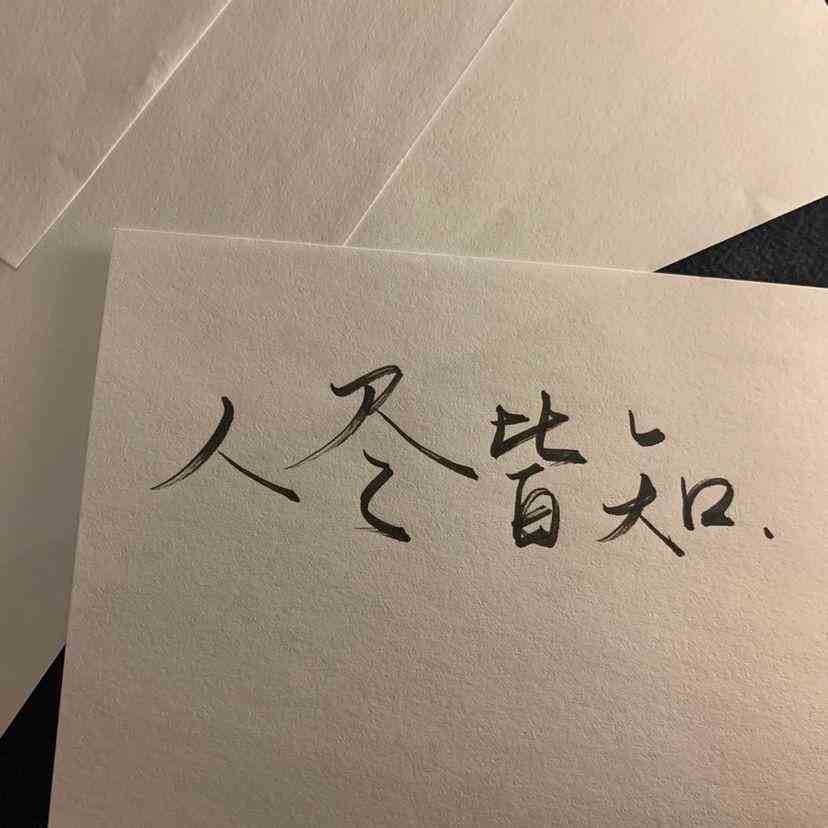 人尽皆知.